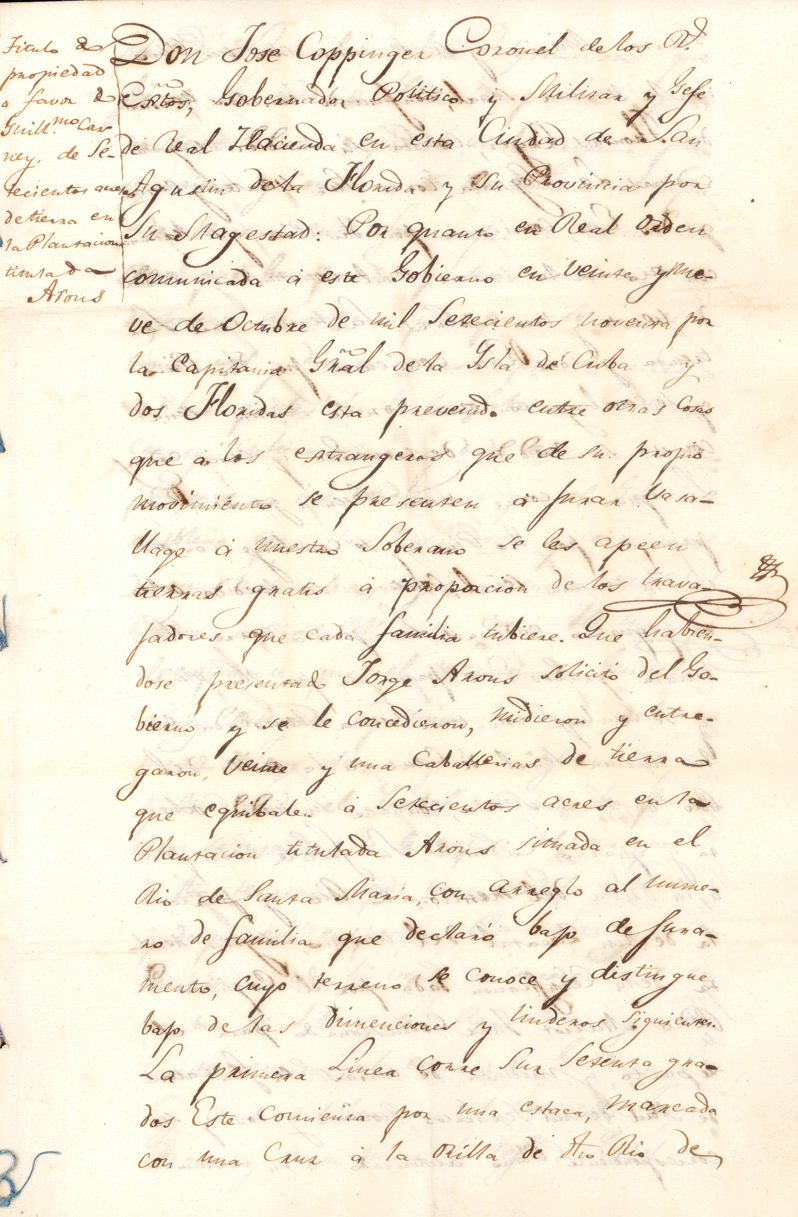 Titulo de
propiedad
a favor de
Guill.mo Car
ney, de Se-
tecientos acres
de tierra en
la Plantacion
titulada
Arons
Don Jose Coppinger Coronel de los R.s
Extos, Gobernador Politico y Militar y Gefe
de Real Hacienda en esta Ciudad de San
Agustin de la Florida y su Provincia por
Su Magestad: Por quanto en Real orden
comunicada á este Gobierno en veinte y nue-
ve de Octubre de mil Setecientos noventa por
la Capitania Gñal de la Ysla de Cuba y
dos Floridas esta prevenido entre otras cosas
que a los estrangeros que de su propio
movimiento se presenten á jurar vasa-
llage á nuestro Soberano se les apeen
tierras gratis á proporcion de los trava-
jadores que cada familia tubiere. Que habien-
dose presentado Jorge Arons solicitó del Go-
bierno y se le concedieron, midieron y entre-
garon, veinte y una Caballerias de tierra
que equibalen á Setecientos acres en la
Plantacion titulada Arons situada en el
Rio de Santa Maria, con arreglo al nume-
ro de familia que declaró bajo de jura-
mento, cuyo terreno se conoce y distingue
bajo de las dimenciones y linderos siguientes.
La primera Linea corre Sur Setenta gra-
dos Este comienza por una estaca, marcada
con una Cruz á la orilla de dho Rio de